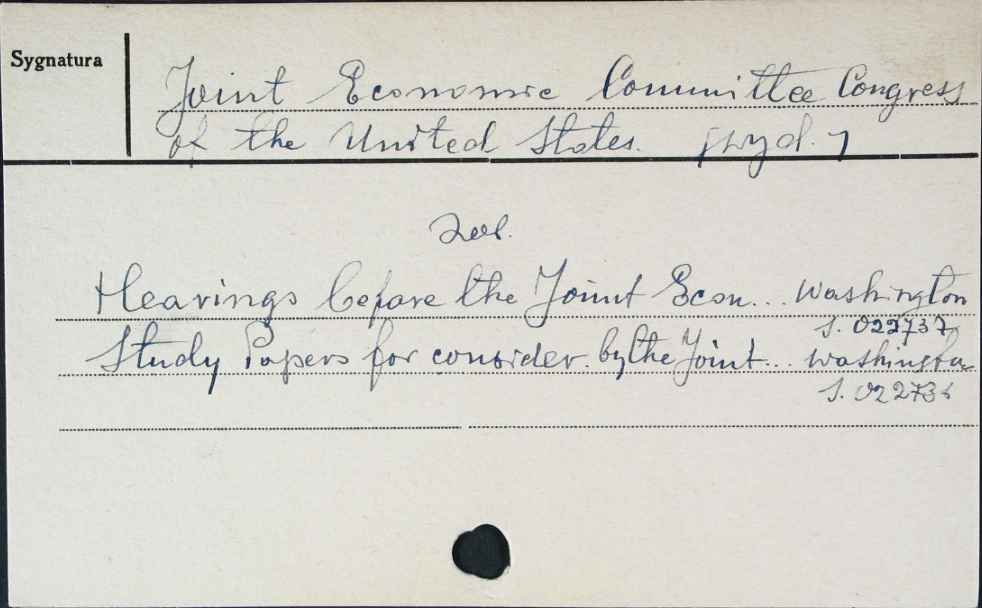 Sygnatura
Joint Economic Committee Congress
of the United States. [wyd.]
Zob.
Hearings before the Joint Econ... Washington
S. 022737
Study Papers for consider. by the Joint... Washington
S. 022736